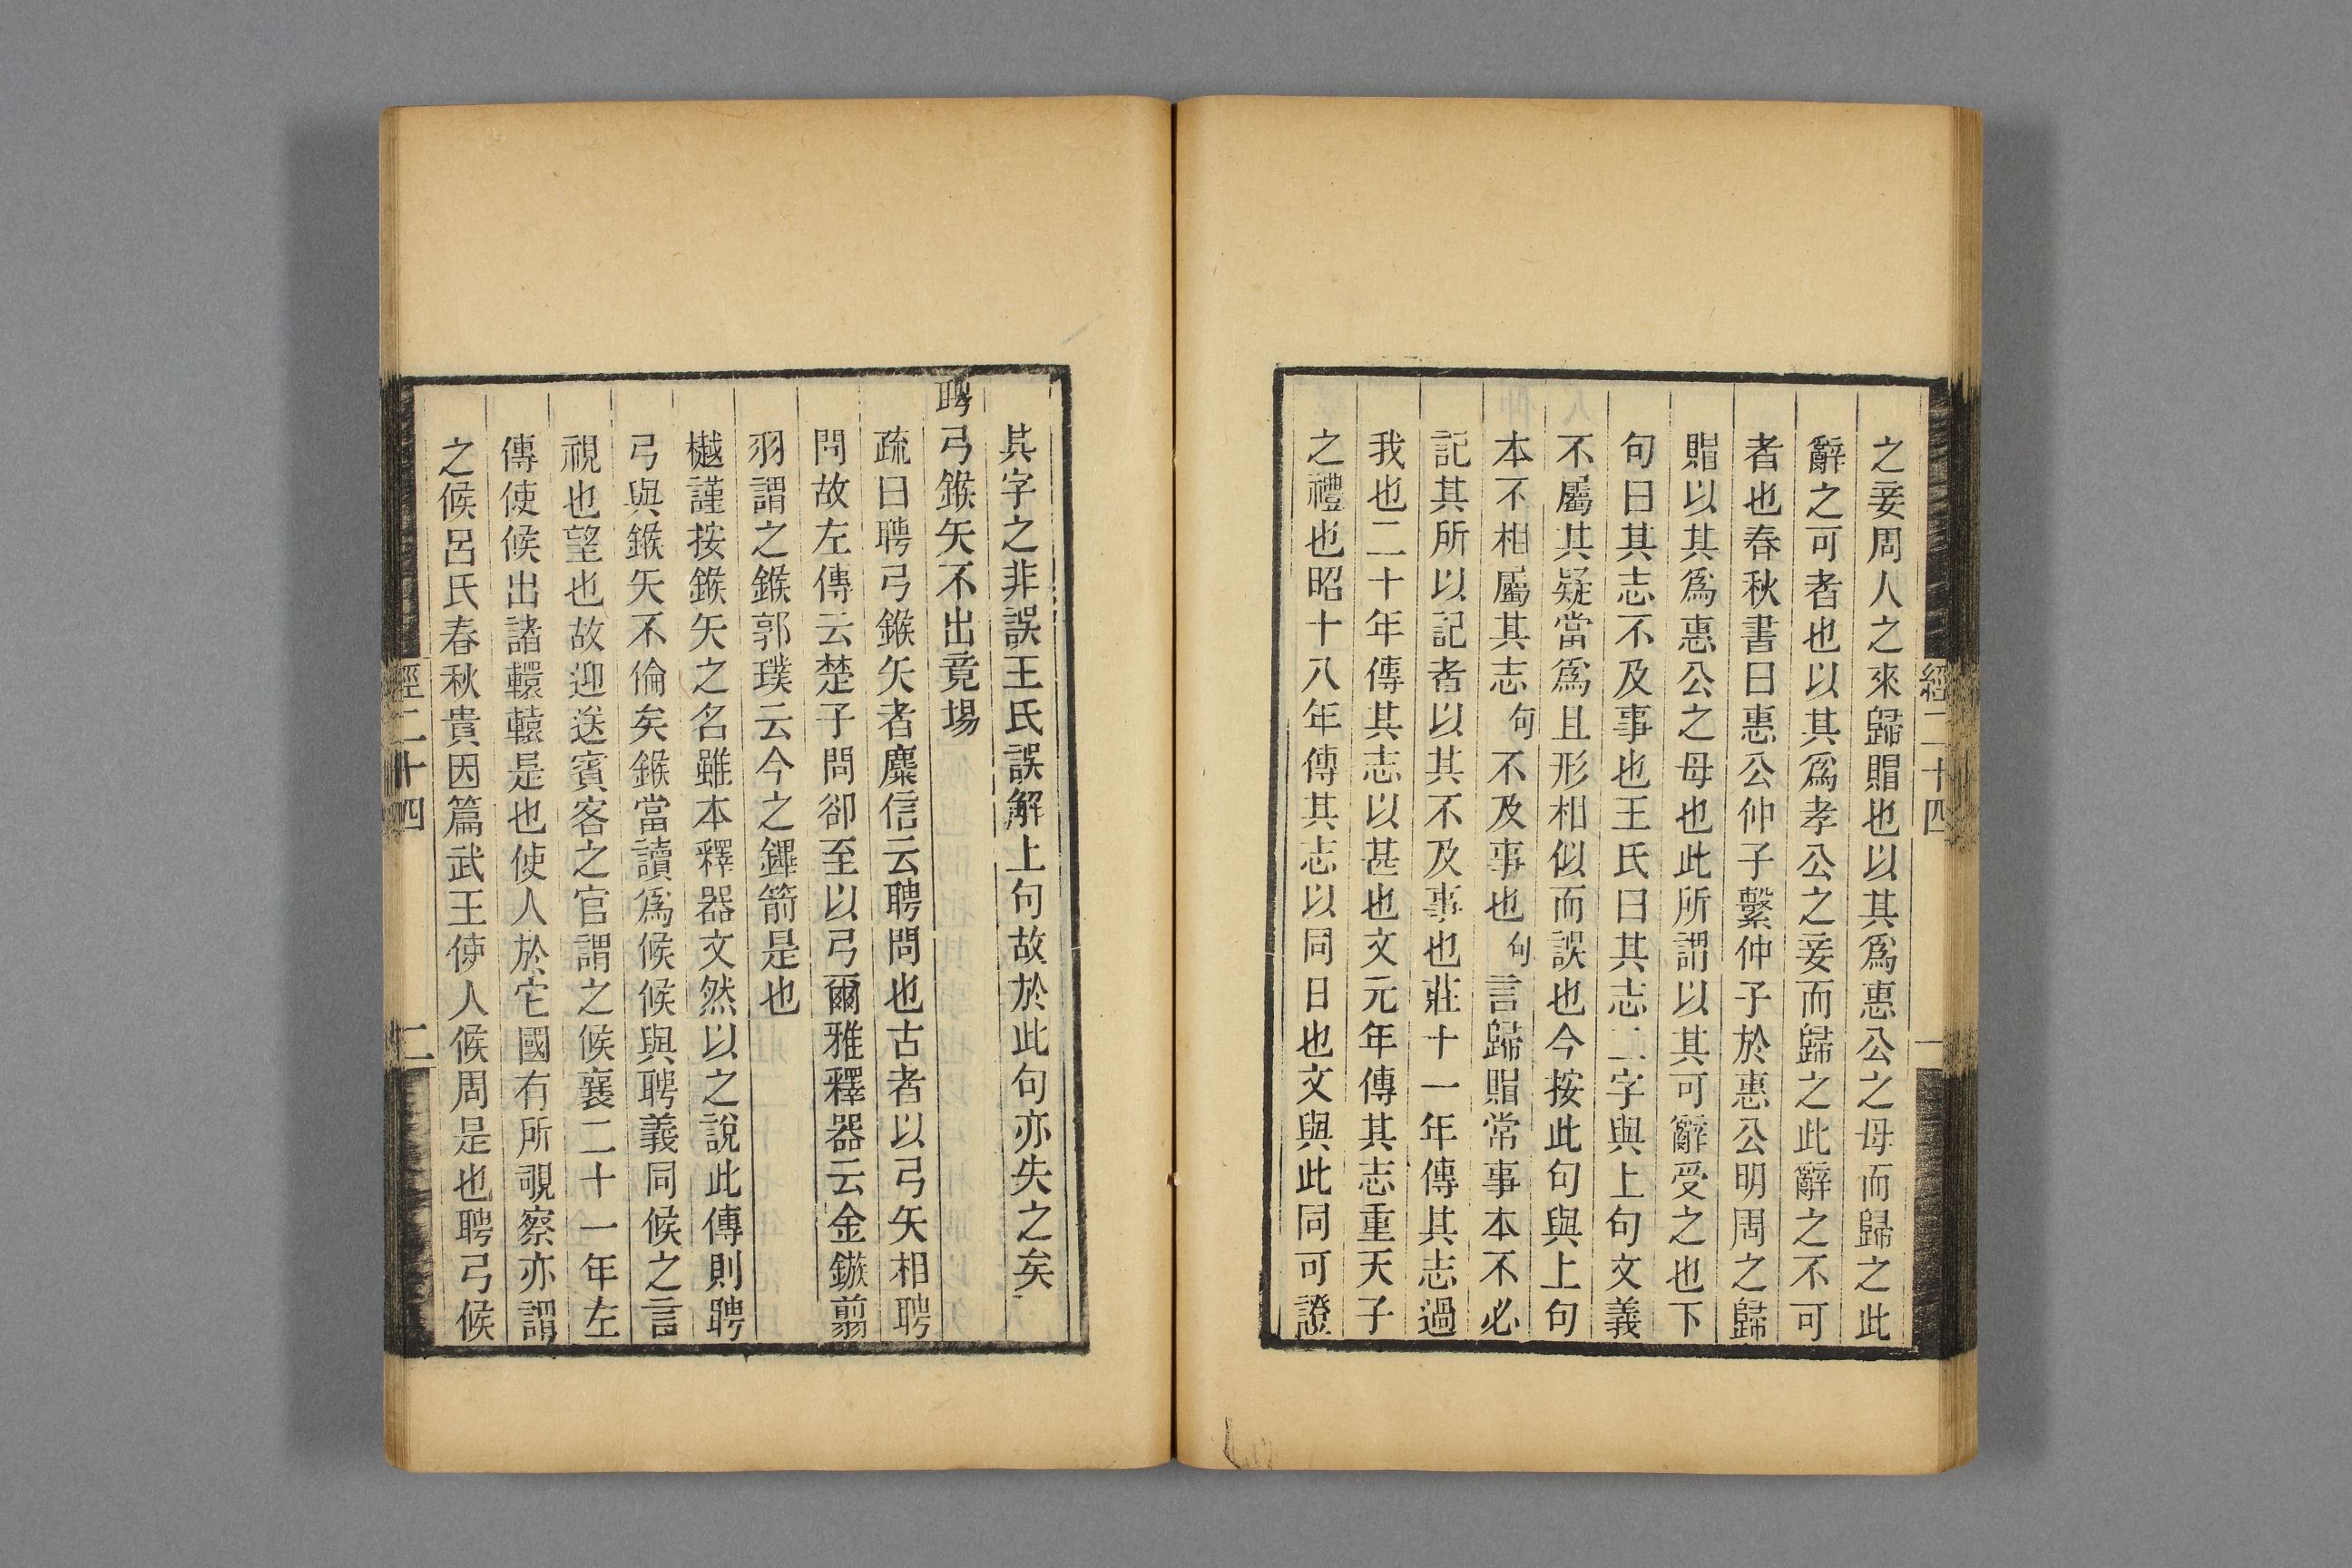 之妾周人之來歸賵也以其爲惠公之母而歸之此
辭之可者也以其爲孝公之妾而歸之此辭之不可
者也春秋書曰惠公仲子繫仲子於惠公明周之歸
賵以其爲惠公之母也此所謂以其可辭受之也下
句曰其志不及事也王氏曰其志二字與上句文義
不屬其疑當爲且形相似而誤也今按此句與上句
本不相屬其志句不及事也句言歸賵常事本不必
記其所以記者以其不及事也莊十一年傳其志過
我也二十年傳其志以甚也文元年傳其志重天子
之禮也昭十八年傳其志以同日也文與此同可證
經二十四
一
其字之非誤王氏誤解上句故於此句亦失之矣
聘弓鍭矢不出竟場
疏曰聘弓鍭矢者麋信云聘問也古者以弓矢相聘
問故左傳云楚子問郤至以弓爾雅釋器云金鏃翦
羽謂之鍭郭璞云今之錍箭是也
樾謹按鍭矢之名雖本釋器文然以之說此傳則聘
弓與鍭矢不倫矣鍭當讀爲候候與聘義同候之言
視也望也故迎送賓客之官謂之候襄二十一年左
傳使候出諸轘轅是也使人於它國有所覗察亦謂
之候呂氏春秋貴因篇武王使人候周是也聘弓候
經二十四
二